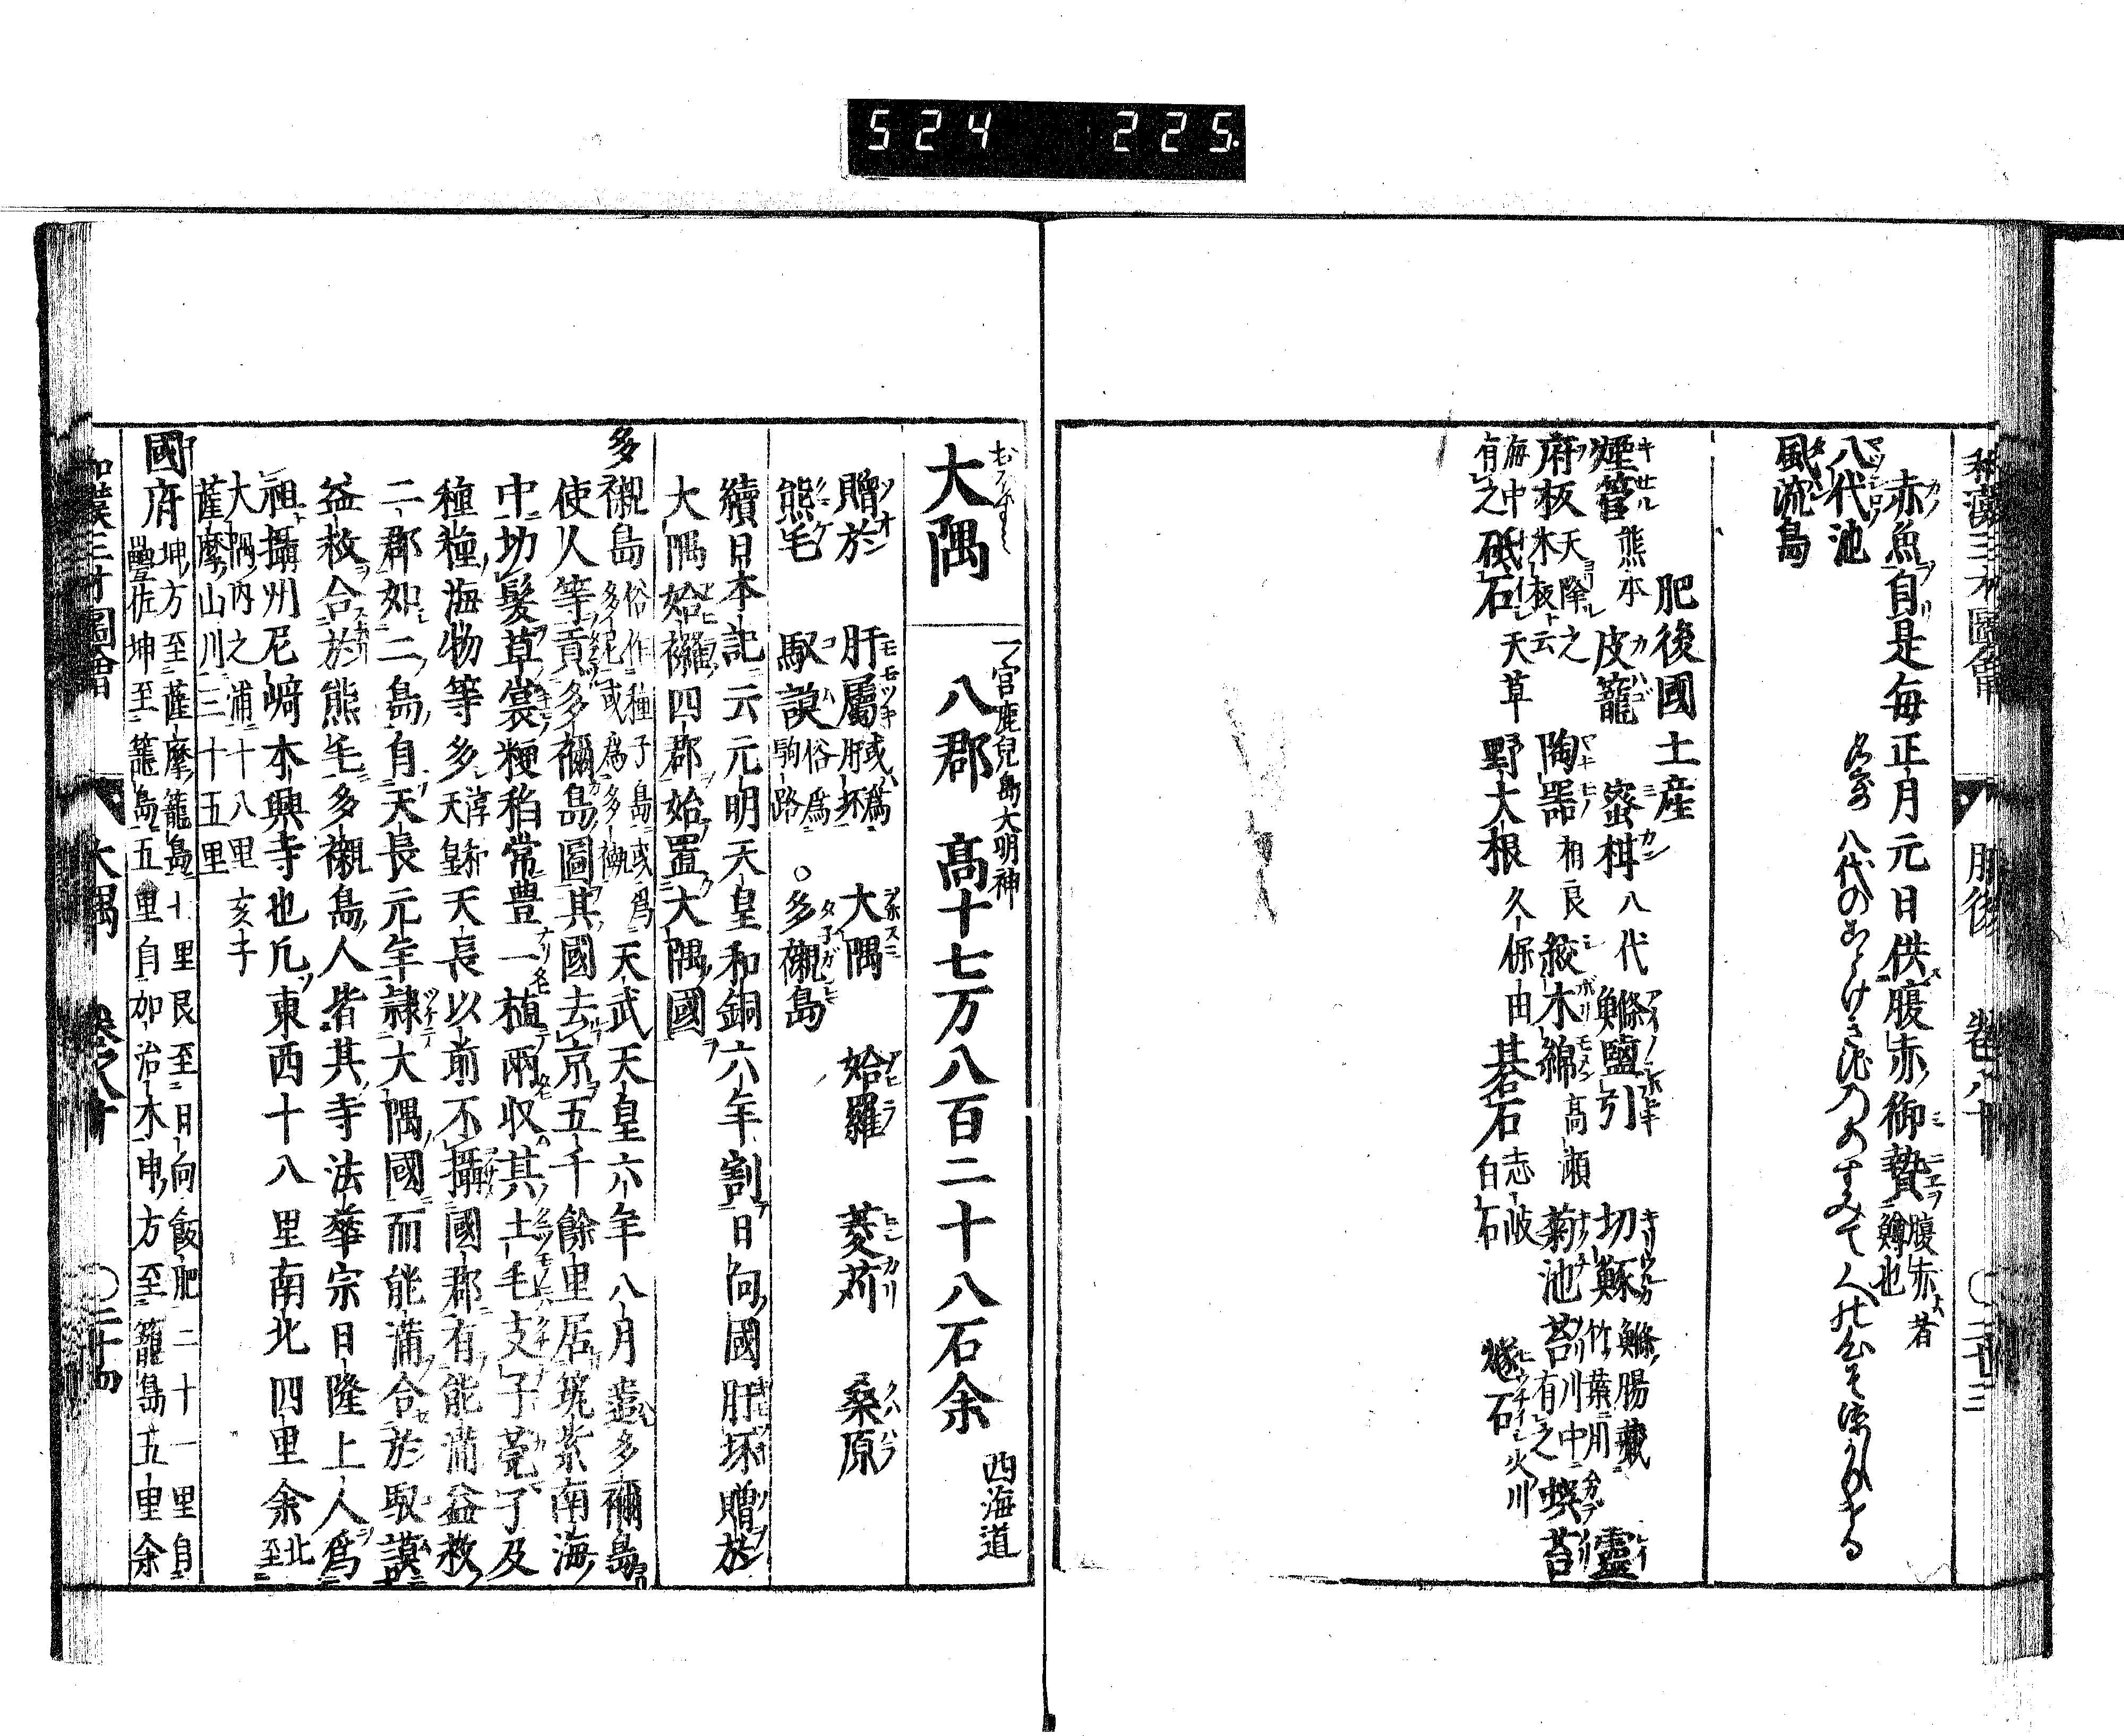 524 225
和漢三才圖會 肥後 卷八十 〇二十三
赤魚自是毎正月元日供腹赤御贄 腹赤者鱒也
八代池 名寄 八代の
風流島
肥後國土産
煙管 熊本 皮籠 蜜柑 八代 鰷鹽引 切鯀 鰷腸藏竹葉用 靈
府板 天降之木板云 陶器 相良 絞木綿 高瀬 菊池苔 川中有之 蟆苔
海中有之 砥石 天草 野大根 久保由 碁石 志岐白石 燧石 火川
大隅 一宮鹿兒島大明神 八郡 高十七万八百二十八石余 西海道
贈於 肝屬 或爲肝坏 大隅 姶羅 菱苅 桑原
熊毛 馭謨 俗爲駒路 〇多襯島
續日本記云元明天皇和銅六年割日向國肝坏贈於
大隅姶襯四郡始置大隅國
多襯島 俗作種子島或爲多尼或爲多襯 天武天皇六年八月遣多禰島
使人等貢多禰島圖其國去京五千餘里居筑紫南海
中切髮草裳粳稻常豊一植兩収其土毛支子莞子及
種種海物等多 淳和天皇天長以前不攝國郡有能満益救
二郡如二島自天長元年隷大隅國而能満合於馭謨
益救合於熊毛多襯島人皆其寺法華宗日隆上人爲
祖攝州尼﨑本興寺也凡東西十八里南北四里余 北至
大隅内之浦十八里 亥
薩摩山川三十五里
國府 坤方至薩摩籠島十里艮至日向飯肥二十一里自
豐佐坤至籠島五里自加治木申方至籠島五里余
和漢三才圖會 大隅 卷之八十 〇二十四